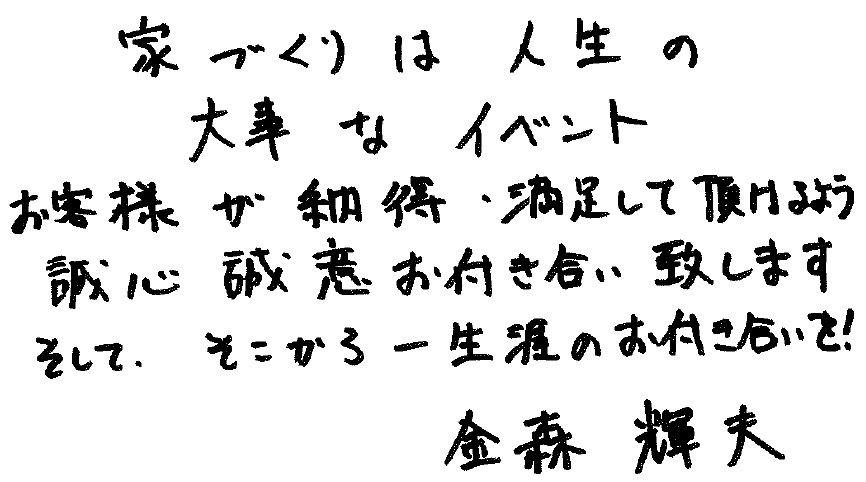 家づくりは人生の
大事なイベント
お客様が納得・満足して頂けるよう
誠心誠意お付き合い致します
そして、そこから一生涯のお付き合いを!
金森 輝夫